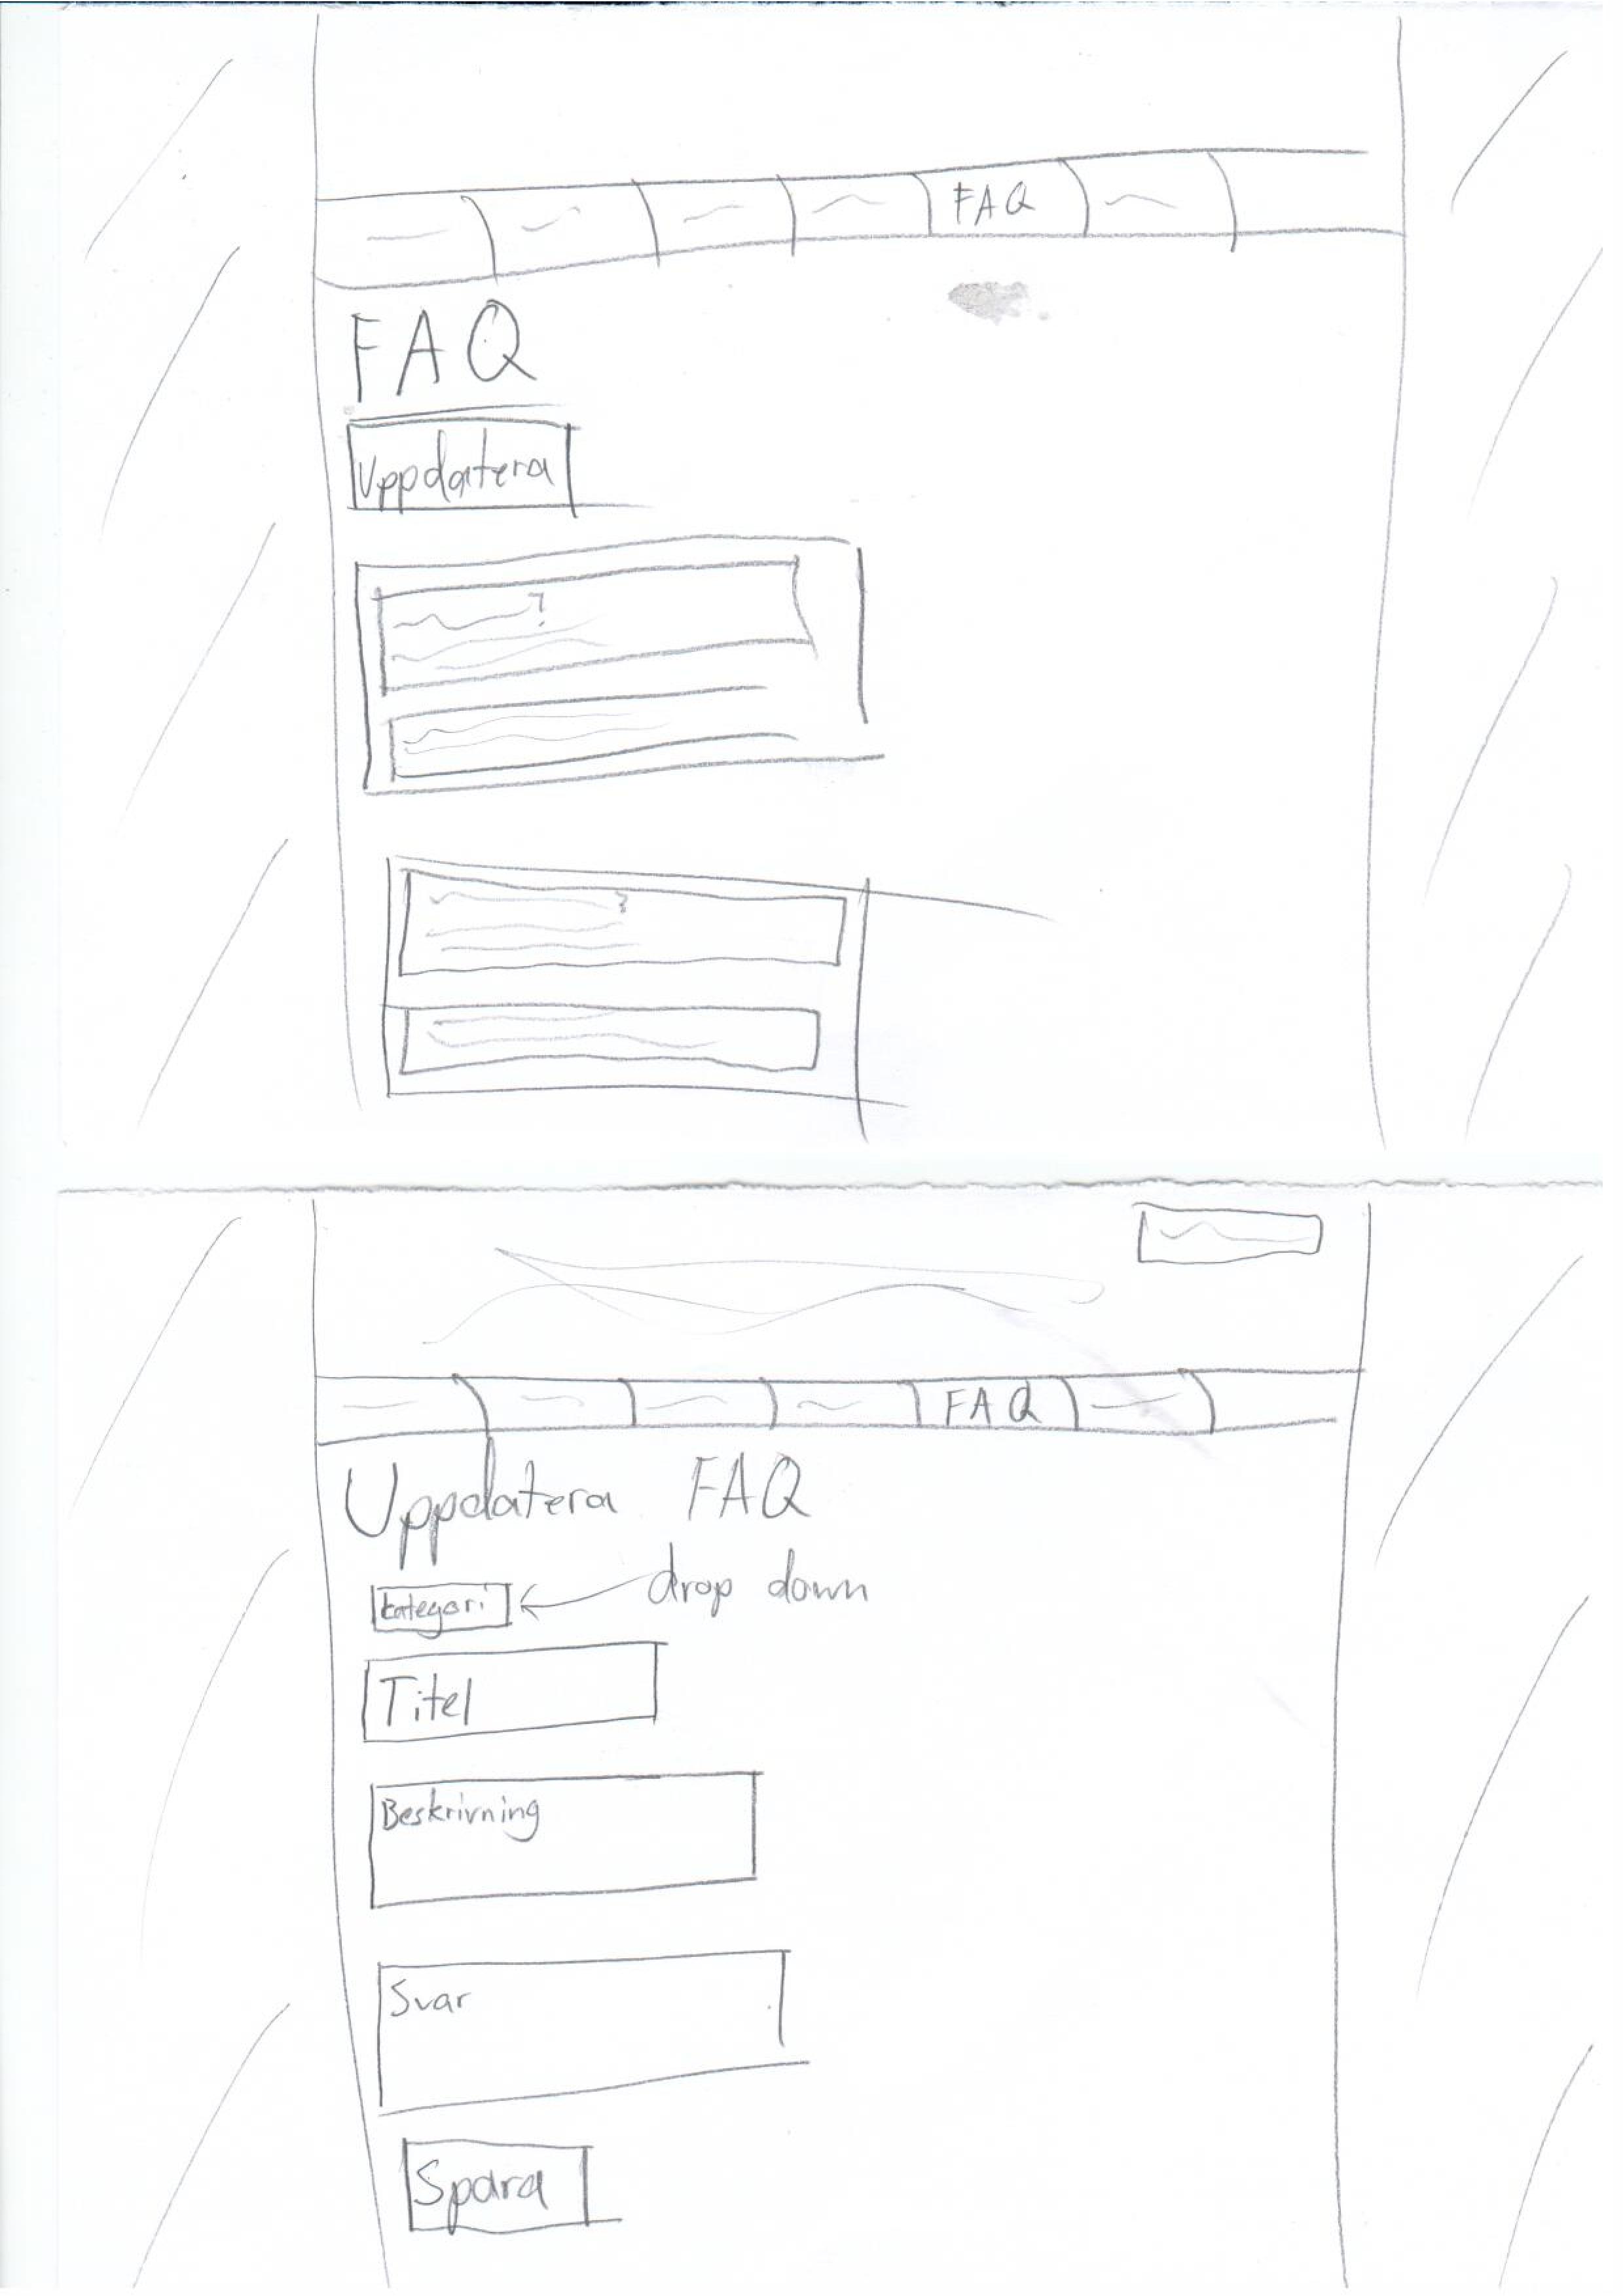 FAQ
FAQ
Uppdatera
?
?
FAQ
Uppdatera FAQ
kategori
drop down
Titel
Beskrivning
Svar
Spara